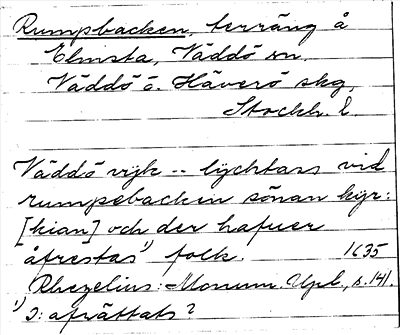 Rumpbacken, terräng å
Elmsta, Väddö sn.
Väddö o. Häverö skg,
Stockh. l.
Väddö vijk -- lychtars vid
rumpebackin sönan kyr:
[kian] och der hafuer
åfrestas¹⁾ folk. 1635
Rhezelius: Monum. Upl., s. 141.
¹⁾ ɔ: afrättats?